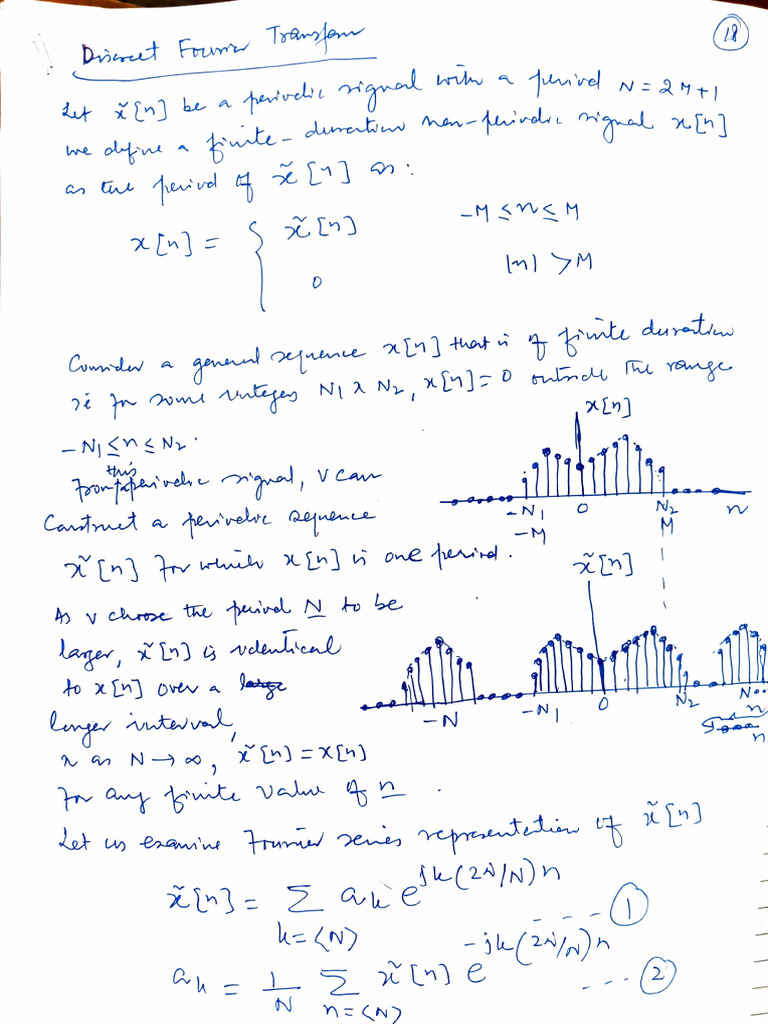 18
Discreet Fourier Transform
Let x̃[n] be a periodic signal with a period N = 2M+1
we define a finite-duration non-periodic signal x[n]
as the period of x̃[n] as:
x[n] = { x̃[n]   -M ≤ n ≤ M
0   |n| > M
Consider a general sequence x[n] that is of finite duration
ie for some integers N1 & N2, x[n]=0 outside the range
-N1 ≤ n ≤ N2.
x[n]
this
From aperiodic signal, v can
-N1 0 N2 n
-M M
Construct a periodic sequence
x̃[n] for which x[n] is one period.
x̃[n]
As v choose the period N to be
larger, x̃[n] is identical
to x[n] over a large
-N -N1 0 N2 N
longer interval,
n
n
& as N → ∞, x̃[n] = x[n]
For any finite value of n.
Let us examine Fourier series representation of x̃[n]
x̃[n] = Σ ak e^jk(2π/N)n ---- 1
k=⟨N⟩
ak = 1/N Σ x̃[n] e^-jk(2π/N)n --- 2
n=⟨N⟩